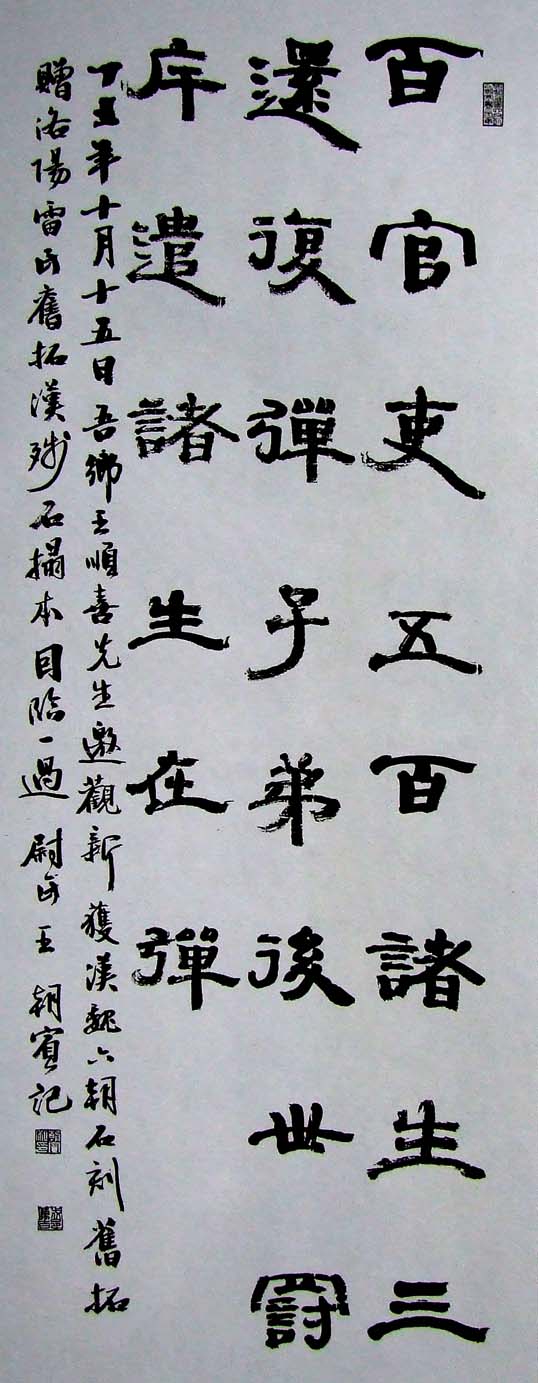 百官吏五百諸生三
還復彈子弟後世罰
斥遣諸生在彈
丁丑年十月十五日吾鄉王順喜先生邀觀新獲漢魏六朝石刻舊拓
贈洛陽雷氏舊拓漢殘石搨本因臨一過 尉氏王朝賓記